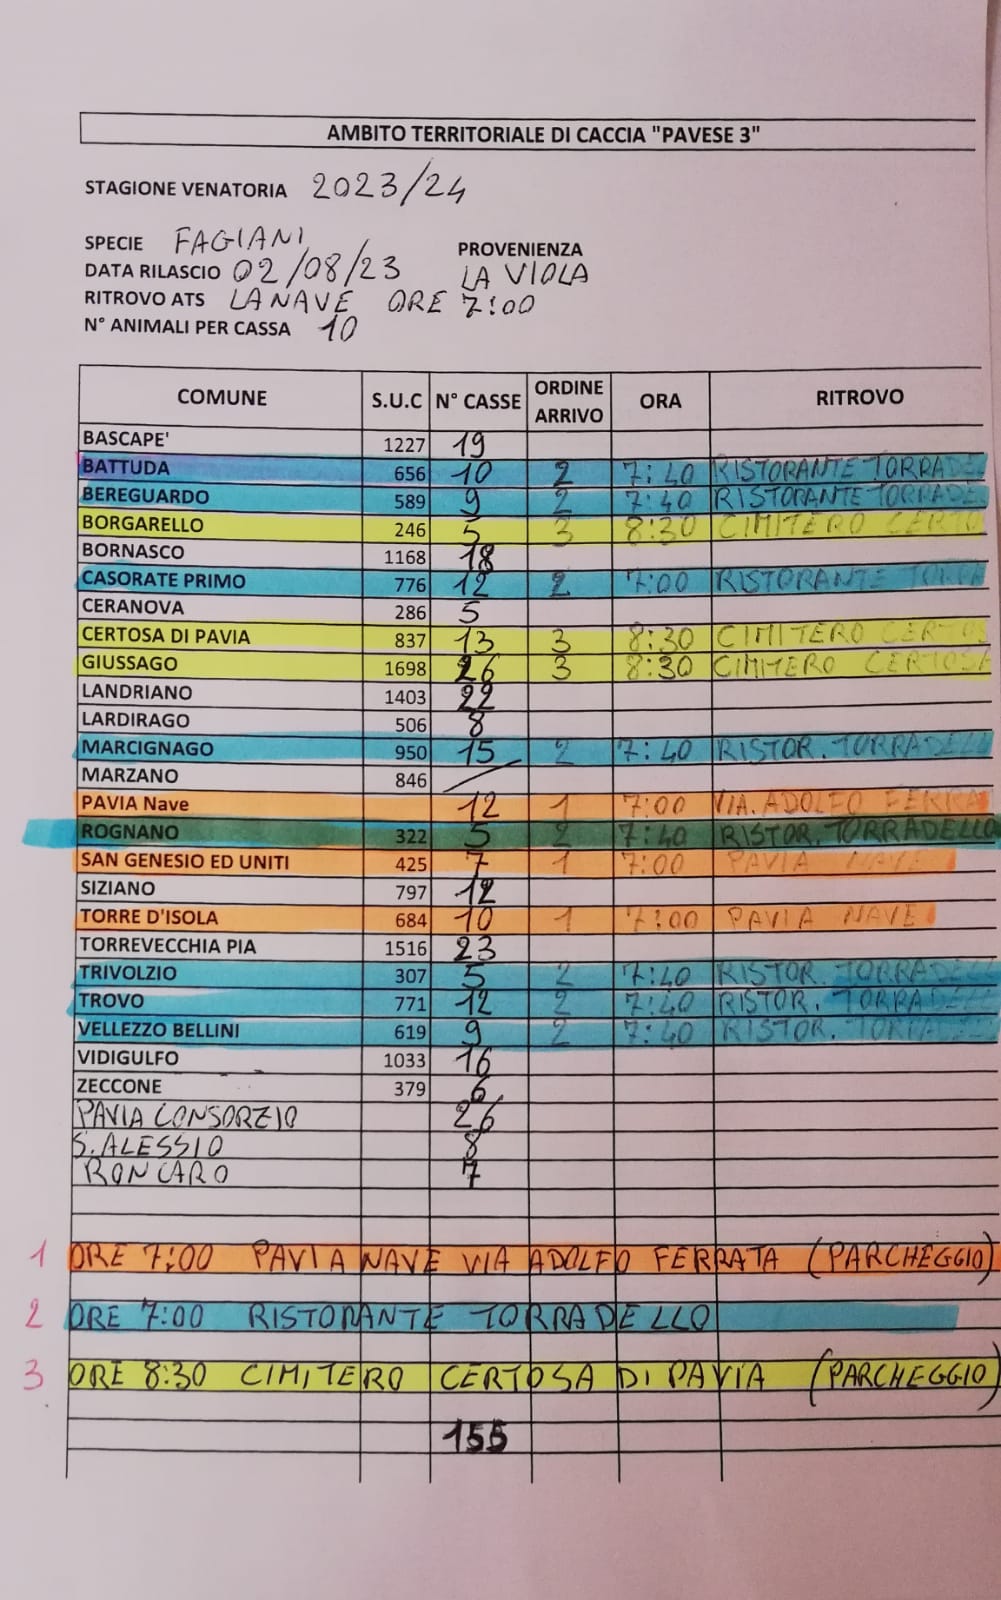 AMBITO TERRITORIALE DI CACCIA "PAVESE 3"
STAGIONE VENATORIA 2023/24
SPECIE FAGIANI PROVENIENZA
DATA RILASCIO 02/08/23 LA VIOLA
RITROVO ATS LA NAVE ORE 7:00
N° ANIMALI PER CASSA 10
COMUNE S.U.C N° CASSE ORDINE ARRIVO ORA RITROVO
BASCAPE' 1227 19
BATTUDA 656 10 2 7:40 RISTORANTE TORRADEL
BEREGUARDO 589 9 2 7:40 RISTORANTE TORRADE
BORGARELLO 246 5 3 8:30 CIMITERO CERTO
BORNASCO 1168 18
CASORATE PRIMO 776 12 2 7:00 RISTORANTE
CERANOVA 286 5
CERTOSA DI PAVIA 837 13 3 8:30 CIMITERO CERTOS
GIUSSAGO 1698 26 3 8:30 CIMITERO CERTOSA
LANDRIANO 1403 22
LARDIRAGO 506 8
MARCIGNAGO 950 15 2 7:40 RISTOR. TORRADELL
MARZANO 846
PAVIA Nave 12 1 7:00 VIA. ADOLFO FERRA
ROGNANO 322 5 2 7:40 RISTOR. TORRADELLO
SAN GENESIO ED UNITI 425 7 1 7:00 PAVIA NAVE
SIZIANO 797 12
TORRE D'ISOLA 684 10 1 7:00 PAVIA NAVE
TORREVECCHIA PIA 1516 23
TRIVOLZIO 307 5 2 7:40 RISTOR. TORRADE
TROVO 771 12 2 7:40 RISTOR. TORRADELL
VELLEZZO BELLINI 619 9 2 7:40 RISTOR.
VIDIGULFO 1033 16
ZECCONE 379 6
PAVIA CONSORZIO 26
S. ALESSIO 8
RONCARO 7
1 ORE 7:00 PAVIA NAVE VIA ADOLFO FERRATA (PARCHEGGIO)
2 ORE 7:00 RISTORANTE TORRADELLO
3 ORE 8:30 CIMITERO CERTOSA DI PAVIA (PARCHEGGIO)
155